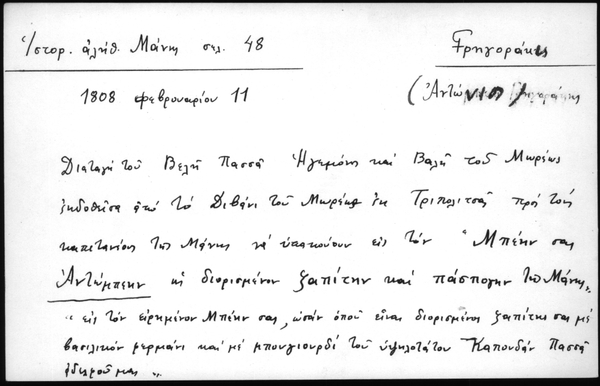 Ἱστορ. ἀλήθ. Μάνης σελ. 48
Γρηγοράκης
1808 Φεβρουαρίου 11
(Ἀντώνιος)
Διαταγή τοῦ Βελῆ Πασσᾶ Ἡγεμόνος καί Βαλῆ τοῦ Μωρέως
ἐκδοθεῖσα ἀπό τό Διβάνι τοῦ Μωρέως ἐκ Τριπολιτσᾶς πρός τούς
καπετανίους τῆς Μάνης νά ὑπακούουν εἰς τόν "Μπέην σας
Ἀντώμπεην ὡς διορισμένον ζαπίτην καί πάσπογην τῆς Μάνης"
"εἰς τόν εἰρημένον Μπέην σας, ὡσάν ὁποῦ εἶναι διορισμένος ζαπίτης σας μέ
βασιλικόν φερμάνι καί μέ μπουγιουρδί τοῦ ὑψηλοτάτου Καπουδάν Πασσᾶ
ἐδικοῦ μας"